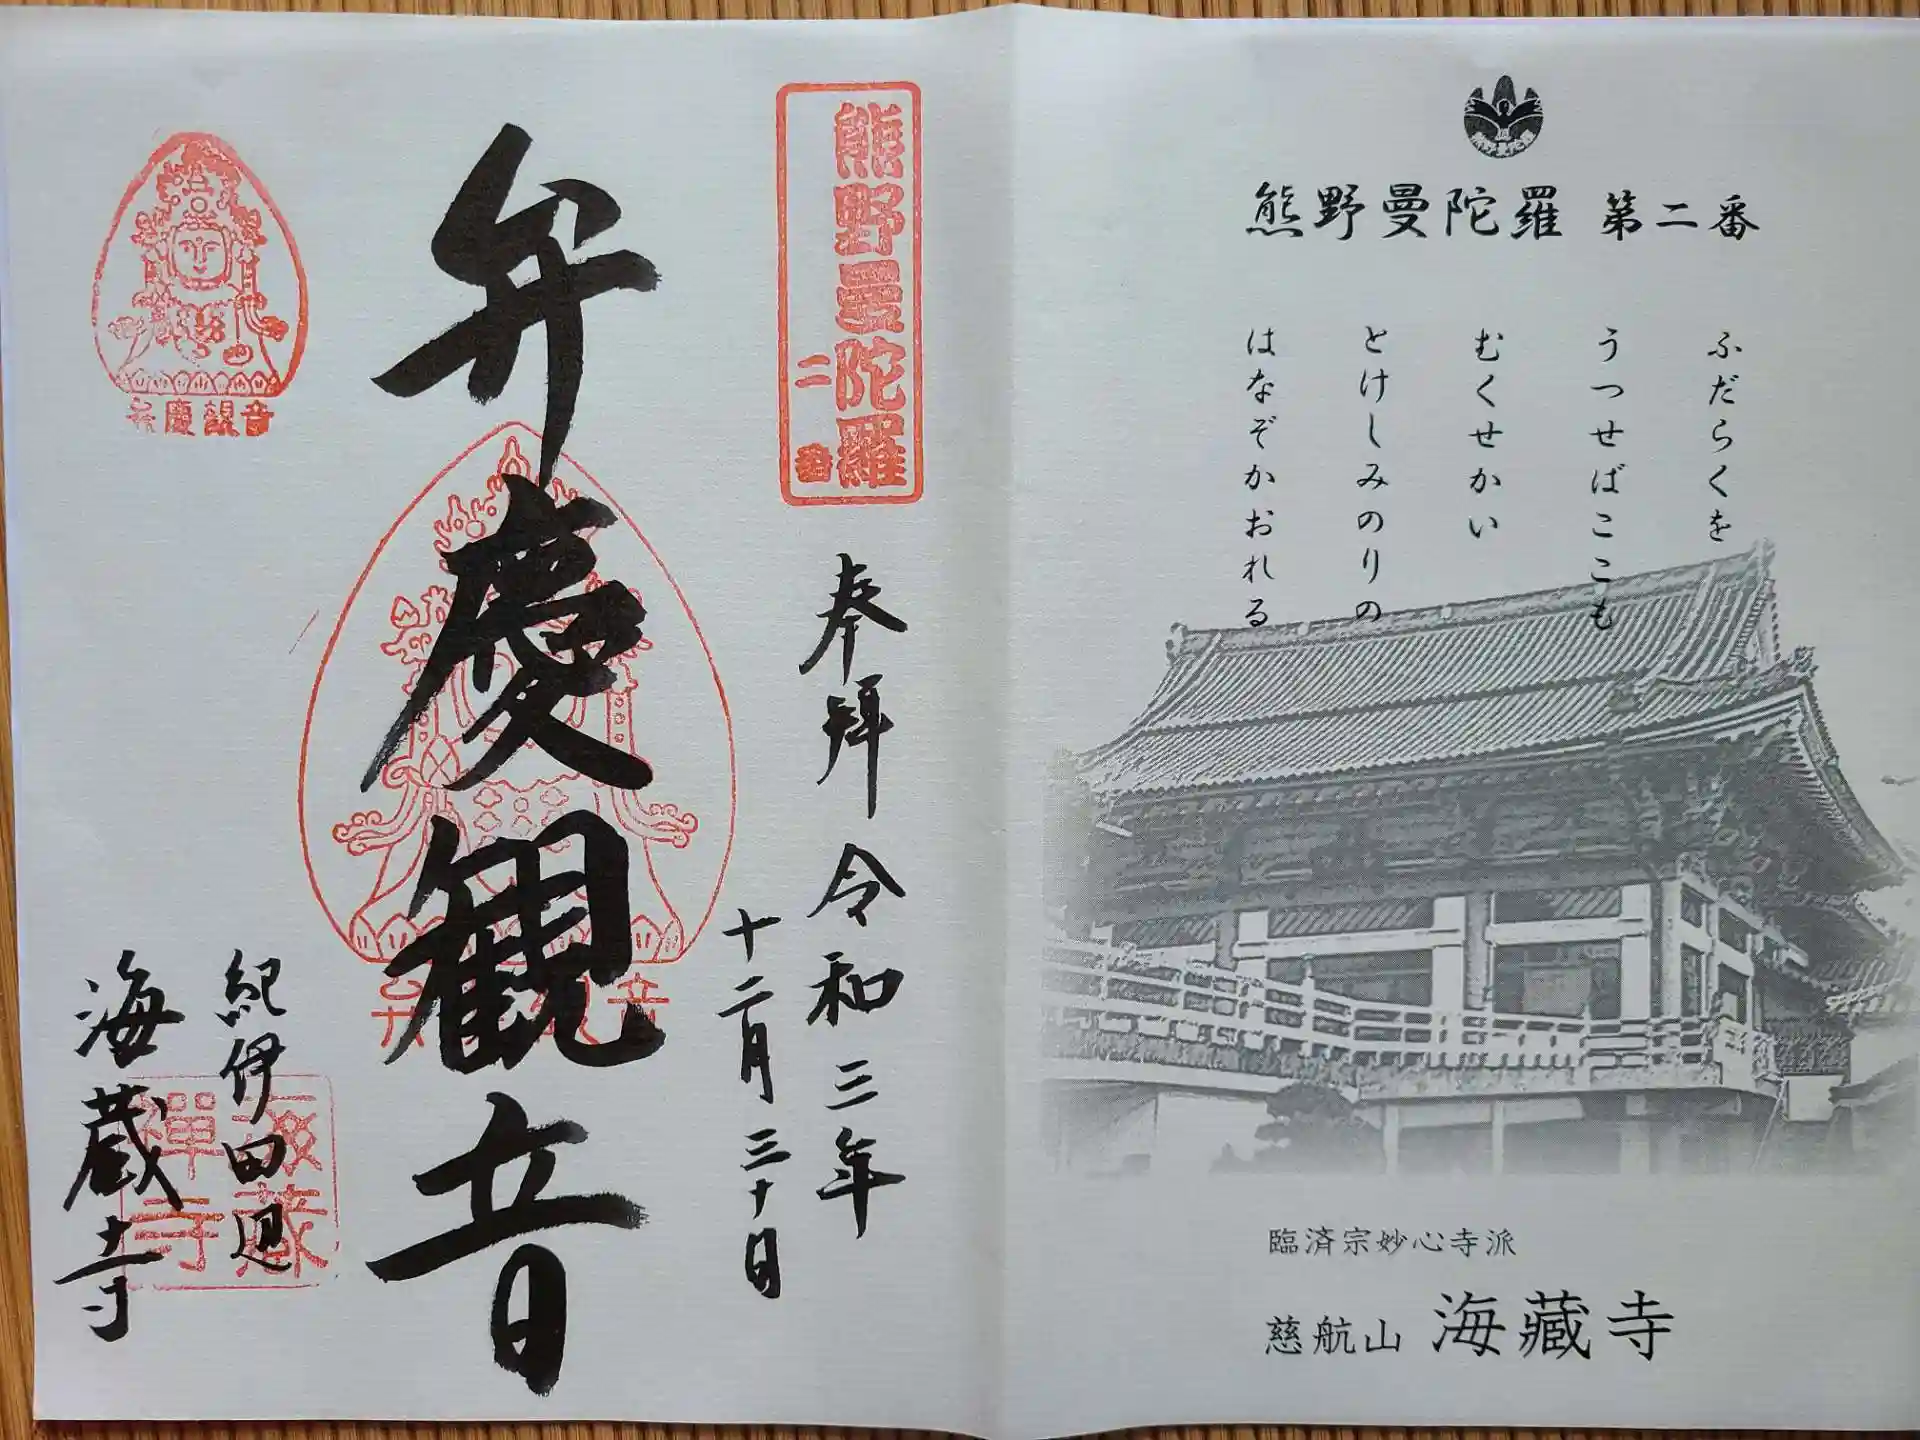 熊野曼陀羅 第二番
ふだらくを
うつせばここも
むくせかい
とけしみのりの
はなぞかおれる
臨済宗妙心寺派
慈航山 海藏寺
熊野曼陀羅
二番
奉拜 令和三年
十二月三十日
弁慶観音
弁慶観音
紀伊田辺
海蔵寺
海蔵禅寺
弁慶観音